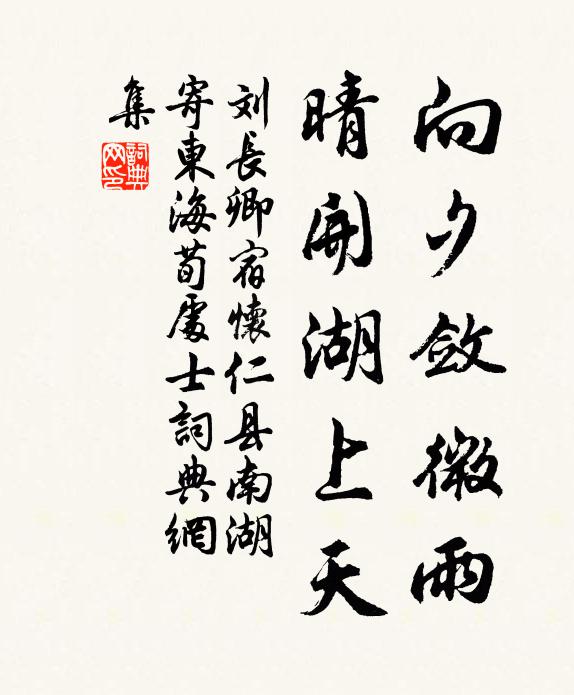 向夕斂微雨
晴開湖上天
刘長卿宿懷仁县南湖
寄東海荀處士詞典網
集
詞典
网印